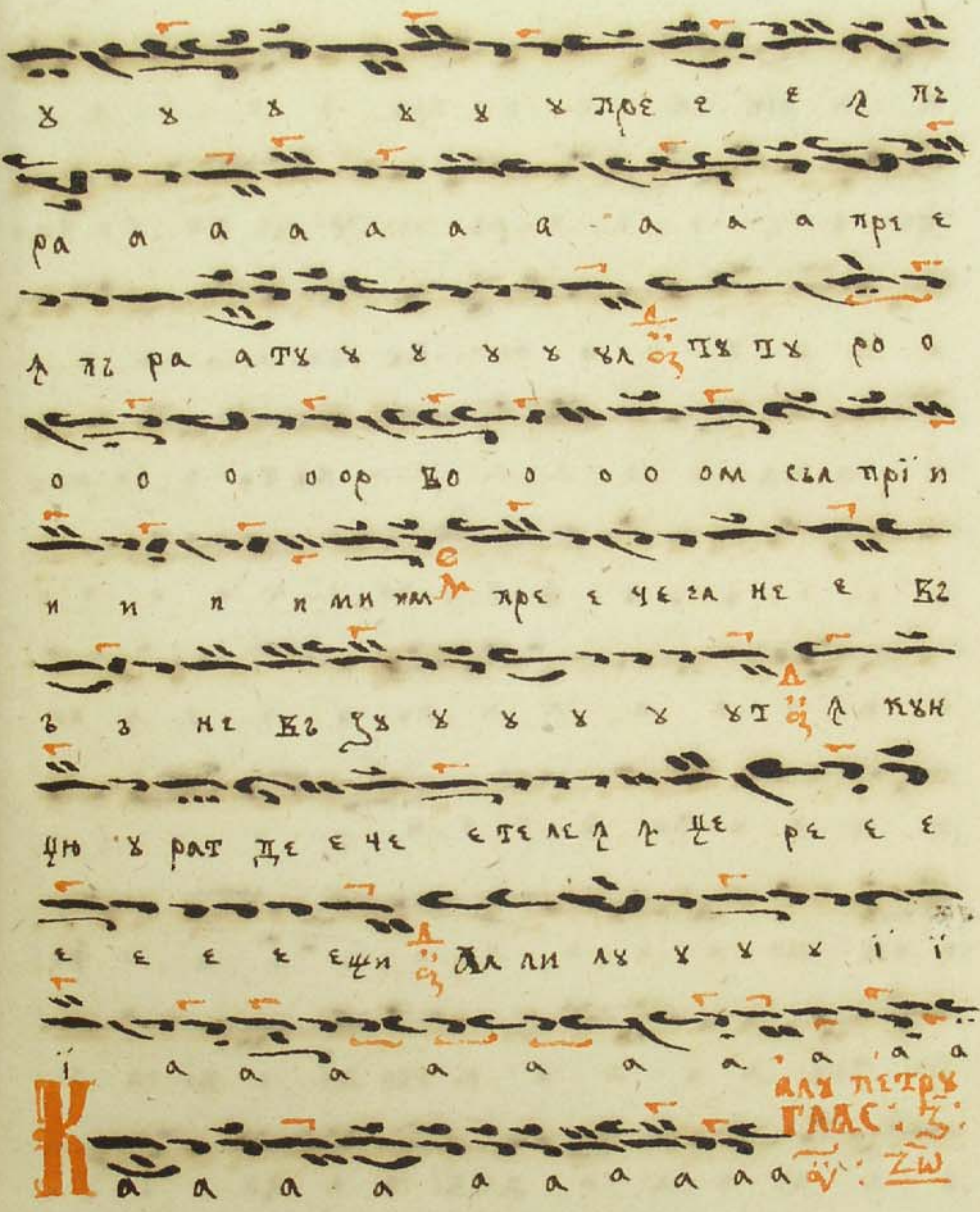 ꙋ ꙋ ꙋ ꙋ ꙋ ꙋ пре е е ꙟ пъ
ра а а а а а а а а а пре е
ꙟ пъ ра а тꙋ ꙋ ꙋ ꙋ ꙋ ꙋл пꙋ пꙋ ро о
о о о о ор во о о о ом съл прї и
и и и и ми им пре е че га не е въ
ъ ъ не въ зꙋ ꙋ ꙋ ꙋ ꙋ ꙋт ꙟ кꙋн
цю ꙋ рат де е че е те ле ꙟ ꙟ це ре е е
е е е е е щи Ал ли лꙋ ꙋ ꙋ ꙋ ї ї
ї а а а а а а а а а а
алꙋ петрꙋ
К глас: з҃:
а а а а а а а а а а